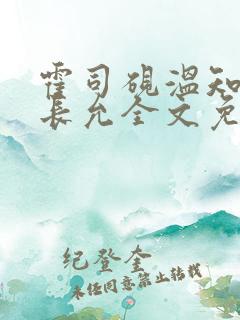 霍司砚温知
长允全文免
纪登奎
未经同意禁止转载